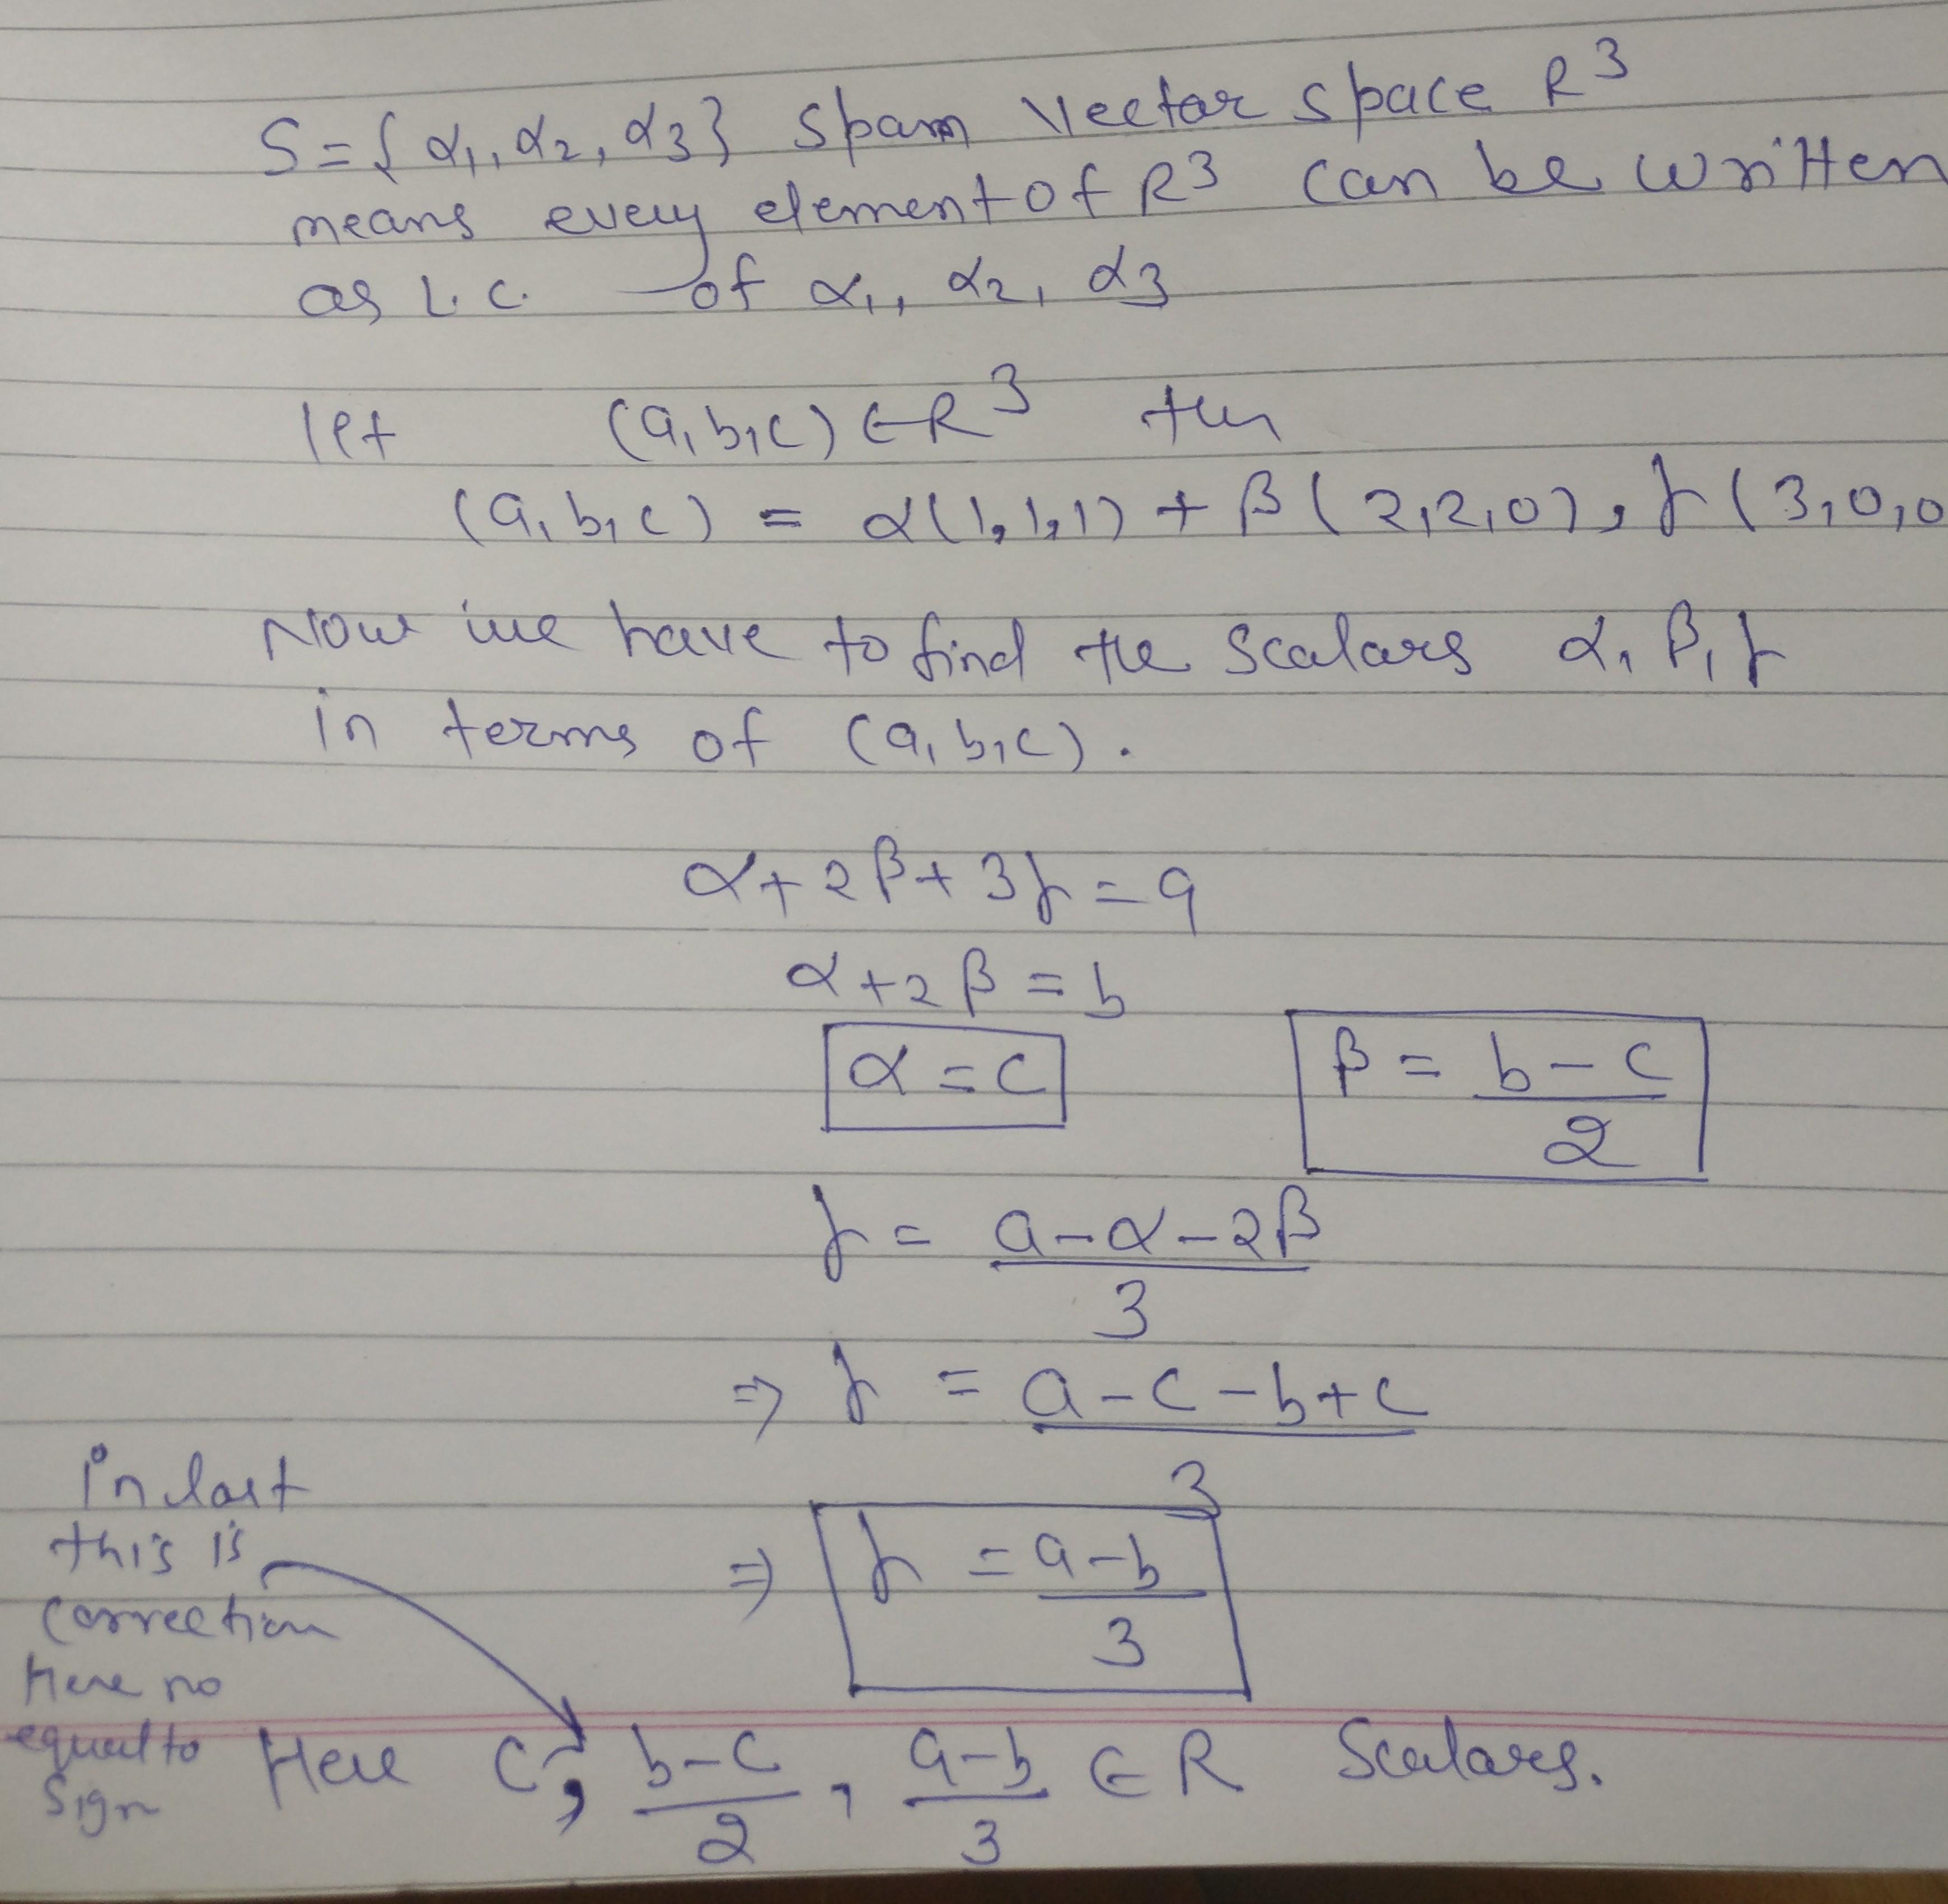 S = { α₁, α₂, α₃} Span Vector space R³
means every element of R³ can be written
as L.C. of α₁, α₂, α₃
let (a, b, c) ∈ R³ then
(a, b, c) = α(1, 1, 1) + β(2, 2, 0), γ(3, 0, 0
Now we have to find the scalars α, β, γ
in terms of (a, b, c).
α + 2β + 3γ = a
α + 2β = b
α = c
β = (b-c)/2
γ = (a-α-2β)/3
⇒ γ = (a-c-b+c)/3
⇒ γ = (a-b)/3
In last
this is
correction
Here no
equal to
Sign
Here c, (b-c)/2, (a-b)/3 ∈ R Scalars.